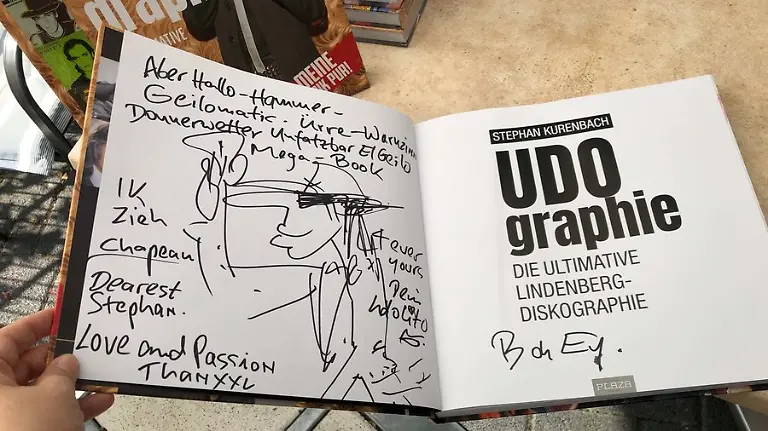 MEINE
Aber Hallo-Hammer-
Geilomatic. Irre-Warnzinn
Donnerwetter Unfatzbar El Geilo
Mega-Book
IK
Zieh
Chapeau
Dearest
Stephan.
Love and Passion
ThanXXL
4 ever
yours
Dein
Udolito
STEPHAN KURENBACH
UDO
graphie
DIE ULTIMATIVE
LINDENBERG-
DISKOGRAPHIE
Boh Ey.
PLAZA